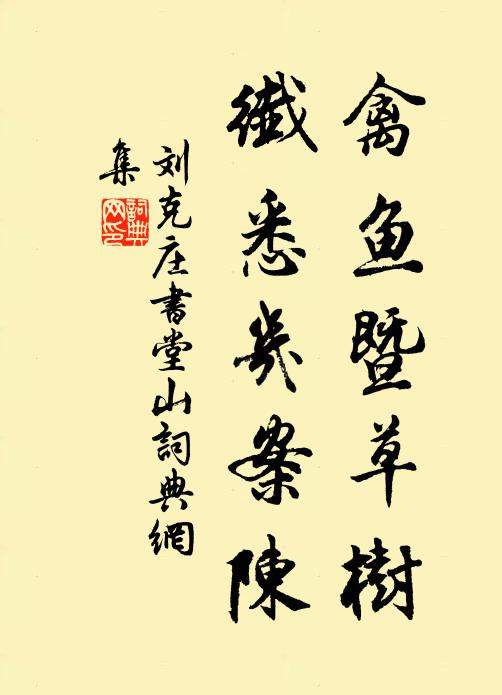 禽鱼暨草樹
纖悉几案陳
刘克庄書堂山詞典網
集
詞典网印